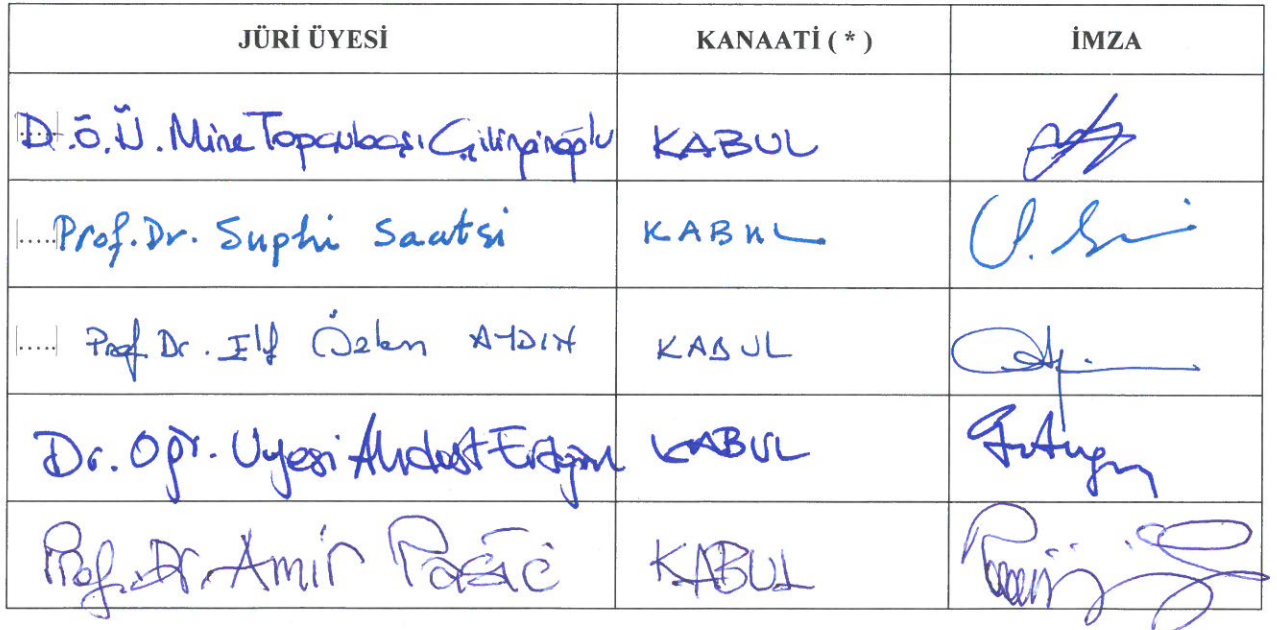 JÜRİ ÜYESİ KANAATİ ( * ) İMZA
D.Ö.Ü. Mine Topçubaşı Çilingiroğlu KABUL
Prof. Dr. Suphi Saatçi KABUL
Prof. Dr. Elif Özlem AYDIN KABUL
Dr. Öğr. Üyesi KABUL
Prof. Dr. Amir Pašić KABUL